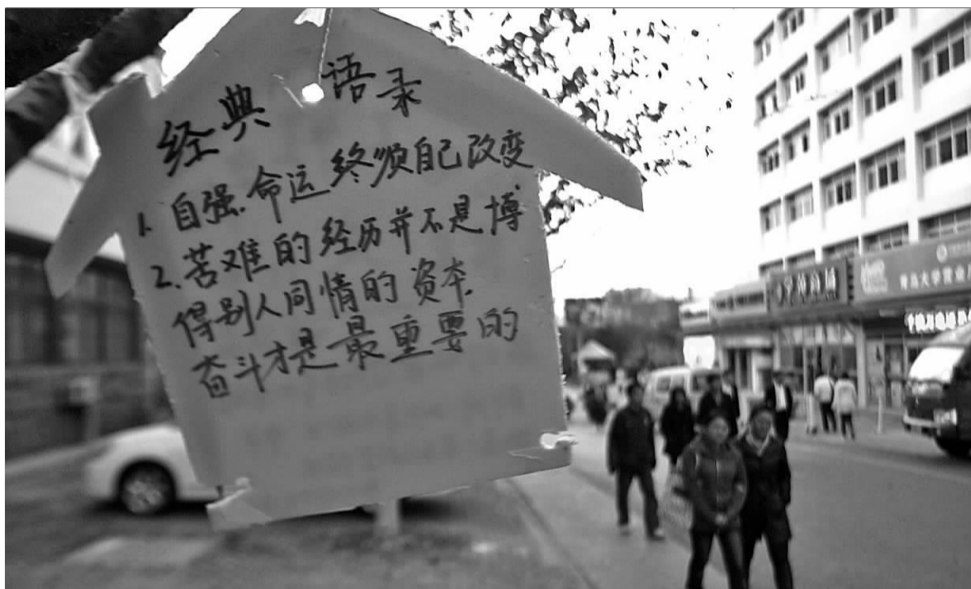 经典 语录
1. 自强.命运终须自己改变
2. 苦难的经历并不是博
得别人同情的资本.
奋斗才是最重要的